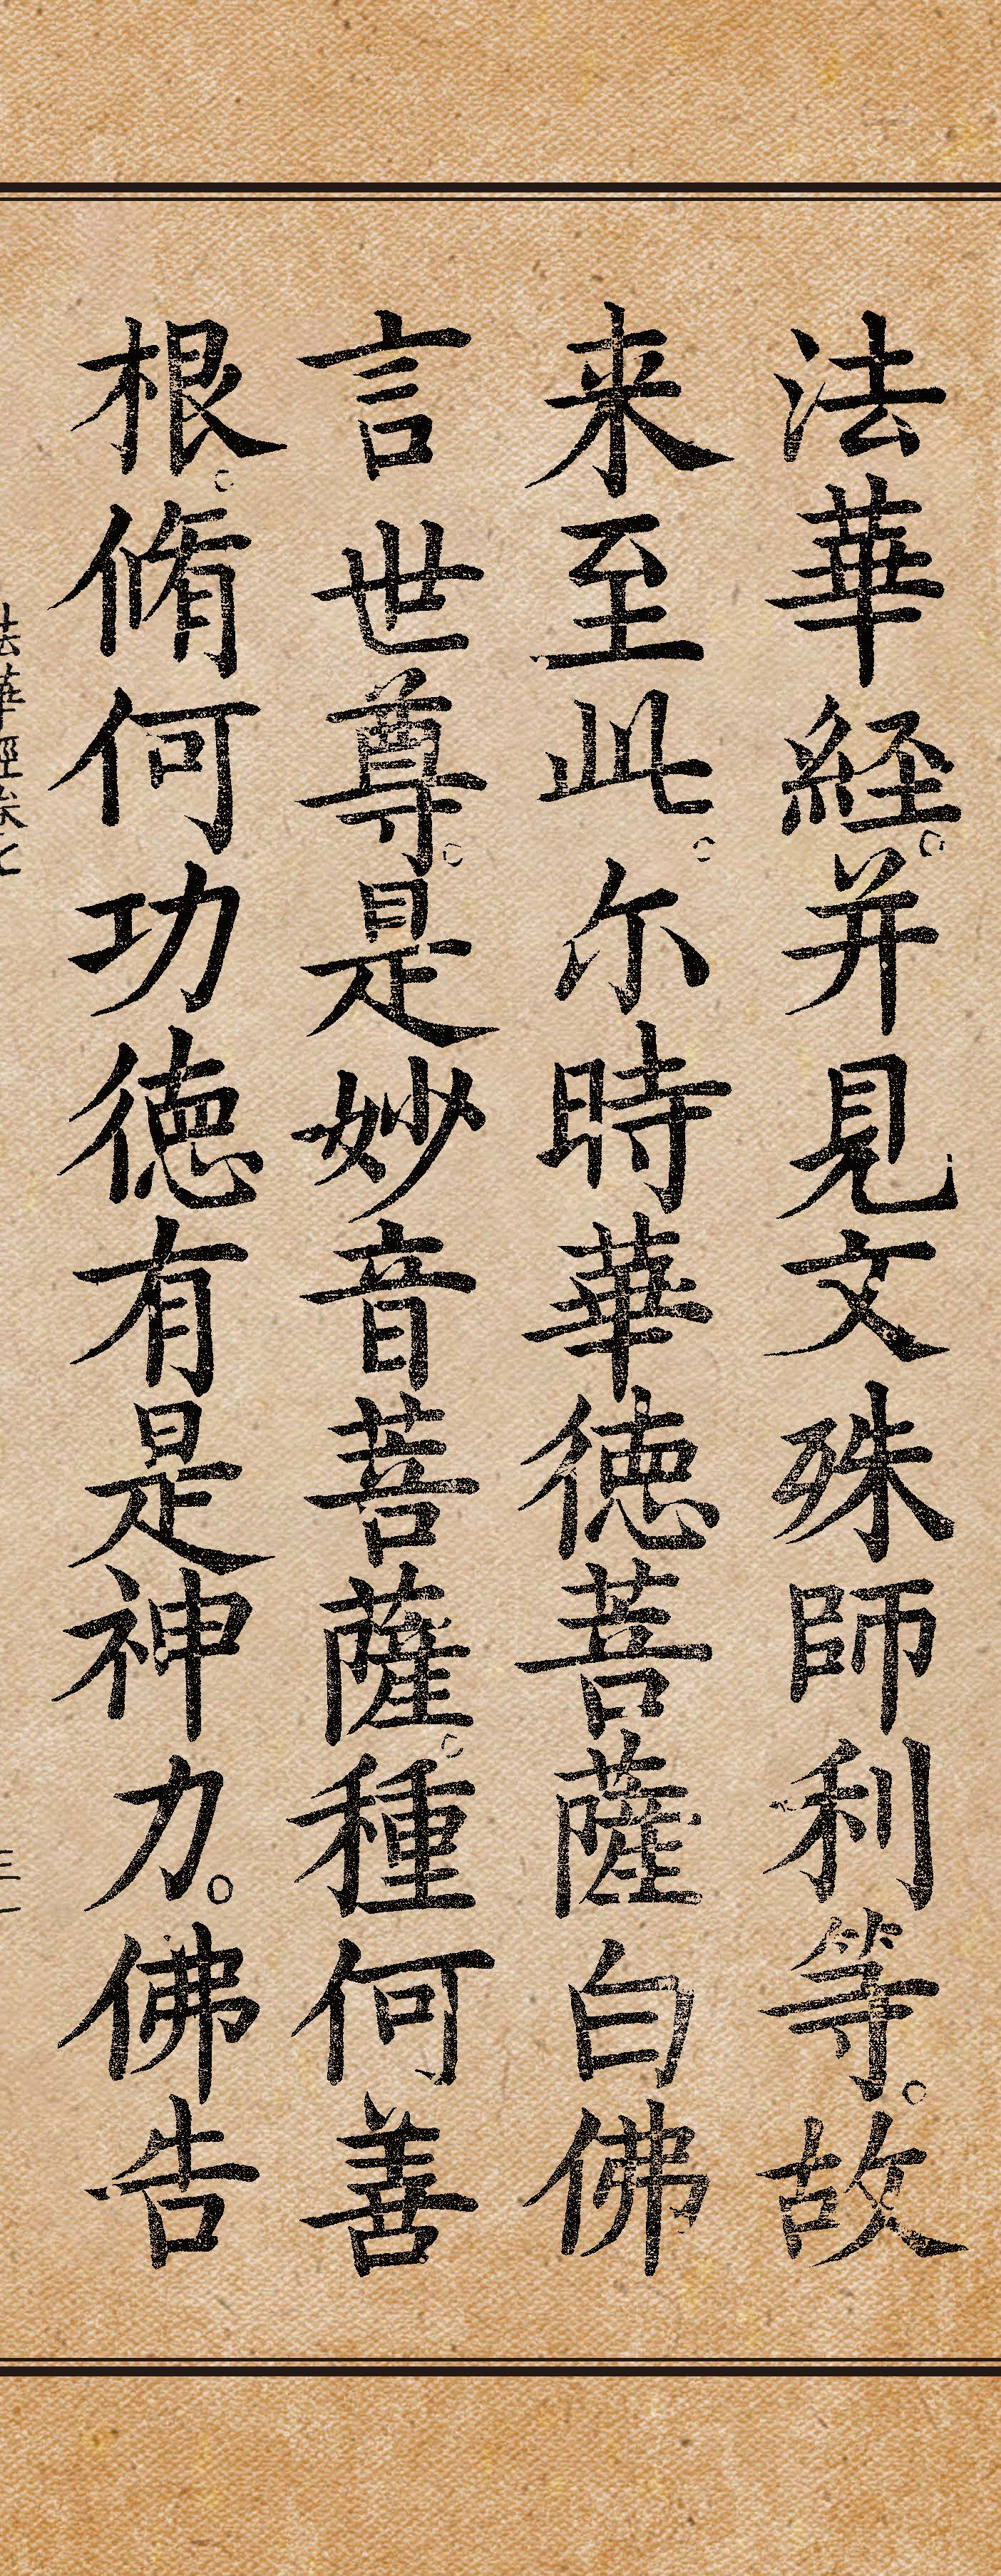 法華経。并見文殊師利等。故
来至此。尔時華徳菩薩白佛
言世尊。是妙音菩薩。種何善
根。脩何功徳有是神力。佛告